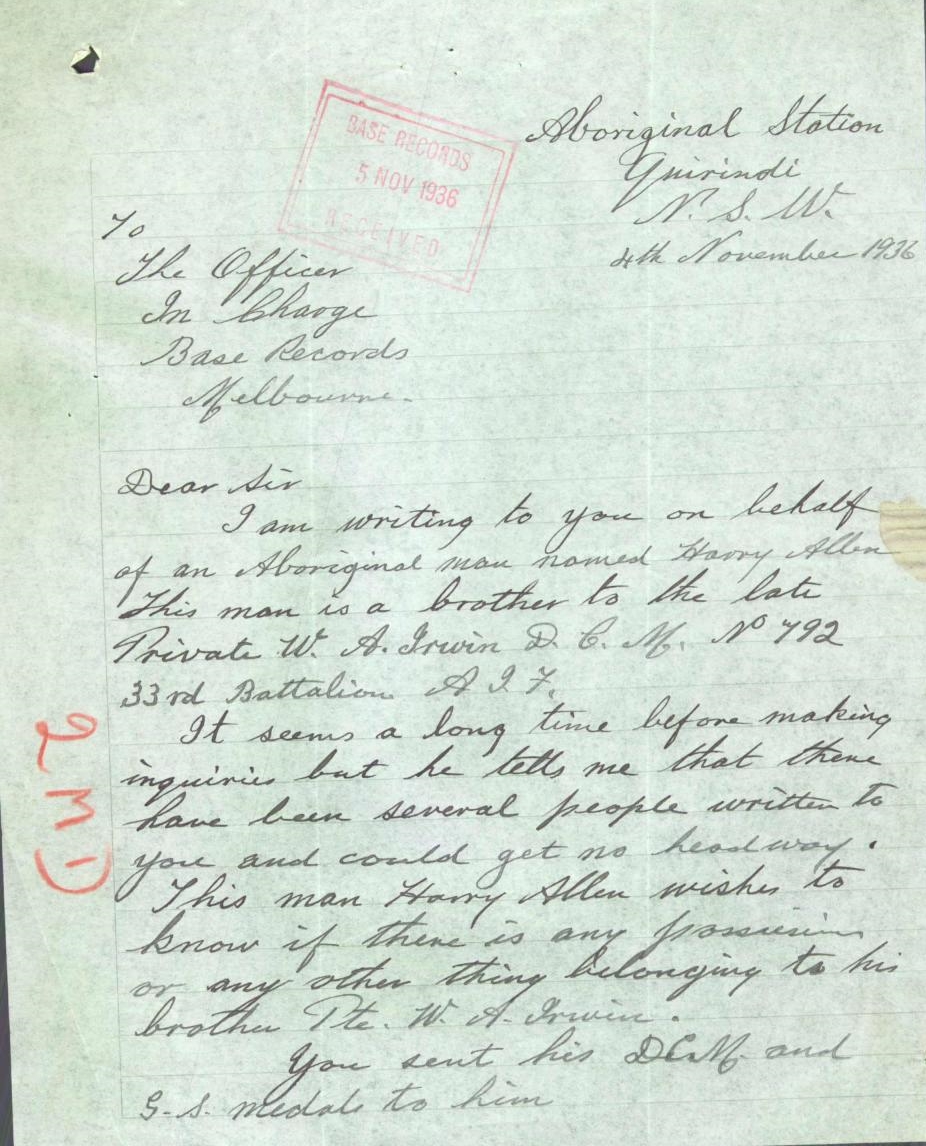 Aboriginal Station
Quirindi
N. S. W.
4th November 1936
BASE RECORDS
5 NOV 1936
RECEIVED
To
The Officer
In Charge
Base Records
Melbourne.
Dear Sir
I am writing to you on behalf
of an Aboriginal man named Harry Allen
This man is a brother to the late
Private W. A. Irwin D. C. M. No 792
33rd Battalion A I F.
It seems a long time before making
inquiries but he tells me that there
have been several people written to
you and could get no headway.
This man Harry Allen wishes to
know if there is any
or any other thing belonging to his
brother Pte. W. A. Irwin.
You sent his DCM. and
G.S. medals to him